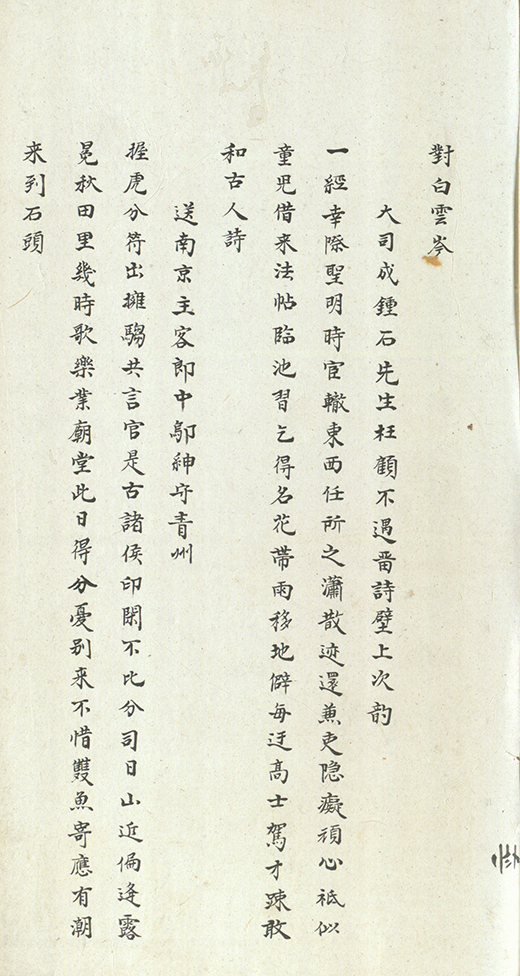 對白雲岑
大司成鍾石先生枉顧不遇畱詩壁上次韵
一經幸際聖明時宦轍東西任所之瀟散迹還兼吏隐癡頑心祗似
童児借来法帖臨池習乞得名花帶雨移地僻每迂髙士駕才踈敢
和古人詩
送南京主客郎中鄔紳守青州
握虎分符出擁騶共言官是古諸侯印閑不比分司日山近偏逢露
冕秋田里幾時歌樂業廟堂此日得分憂别来不惜雙魚寄應有潮
来到石頭